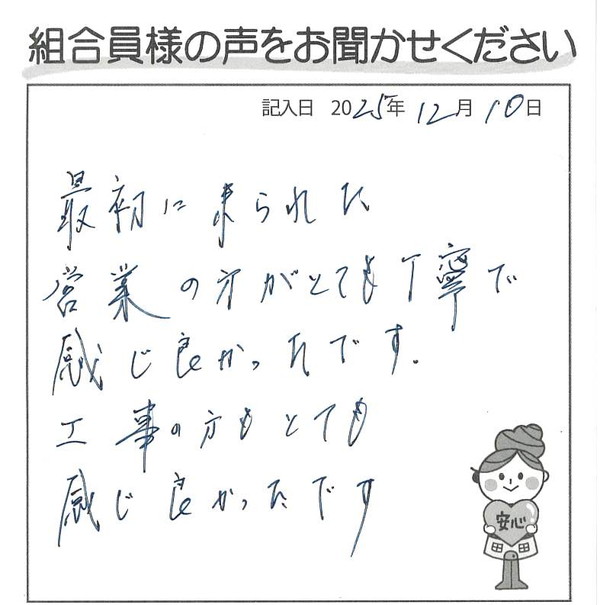 組合員様の声をお聞かせください
記入日 2025年 12月 10日
最初に来られた
営業の方がとても丁寧で
感じ良かったです.
工事の方もとても
感じ良かったです
安心